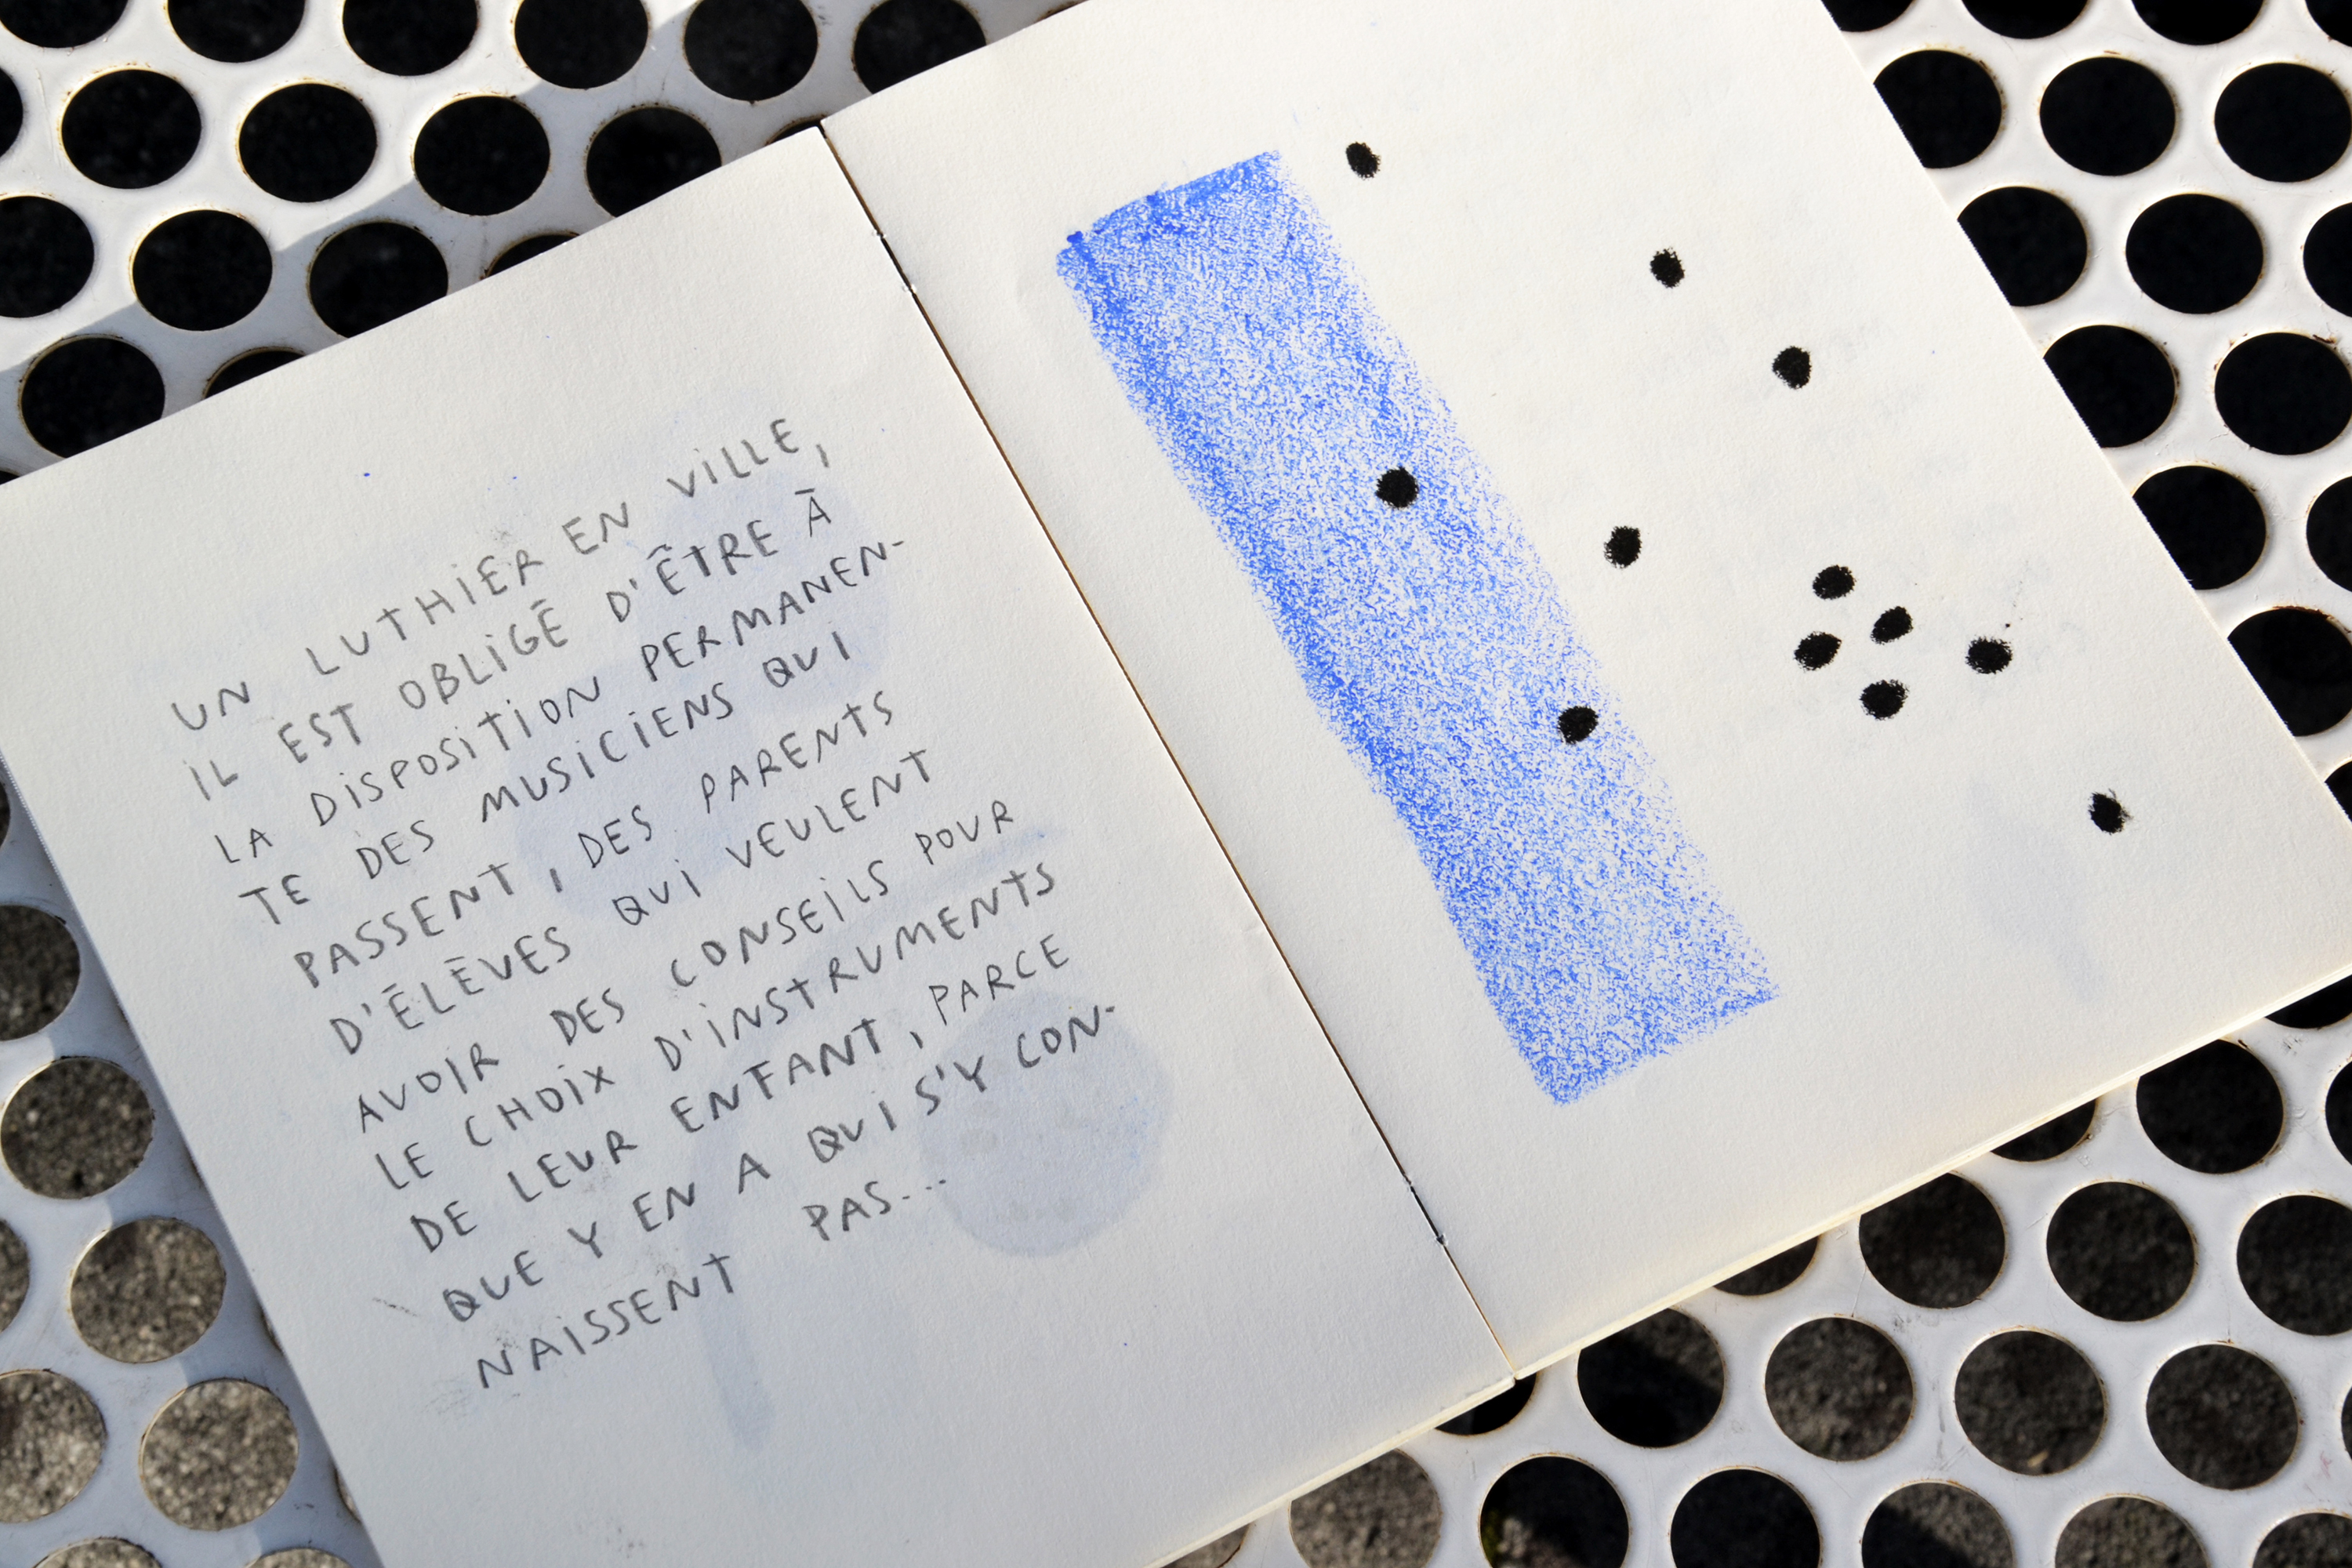 UN LUTHIER EN VILLE,
IL EST OBLIGÉ D'ÊTRE À
LA DISPOSITION PERMANEN-
TE DES MUSICIENS QUI
PASSENT, DES PARENTS
D'ÉLÈVES QUI VEULENT
AVOIR DES CONSEILS POUR
LE CHOIX D'INSTRUMENTS
DE LEUR ENFANT, PARCE
QUE Y EN A QUI S'Y CON-
NAISSENT PAS...